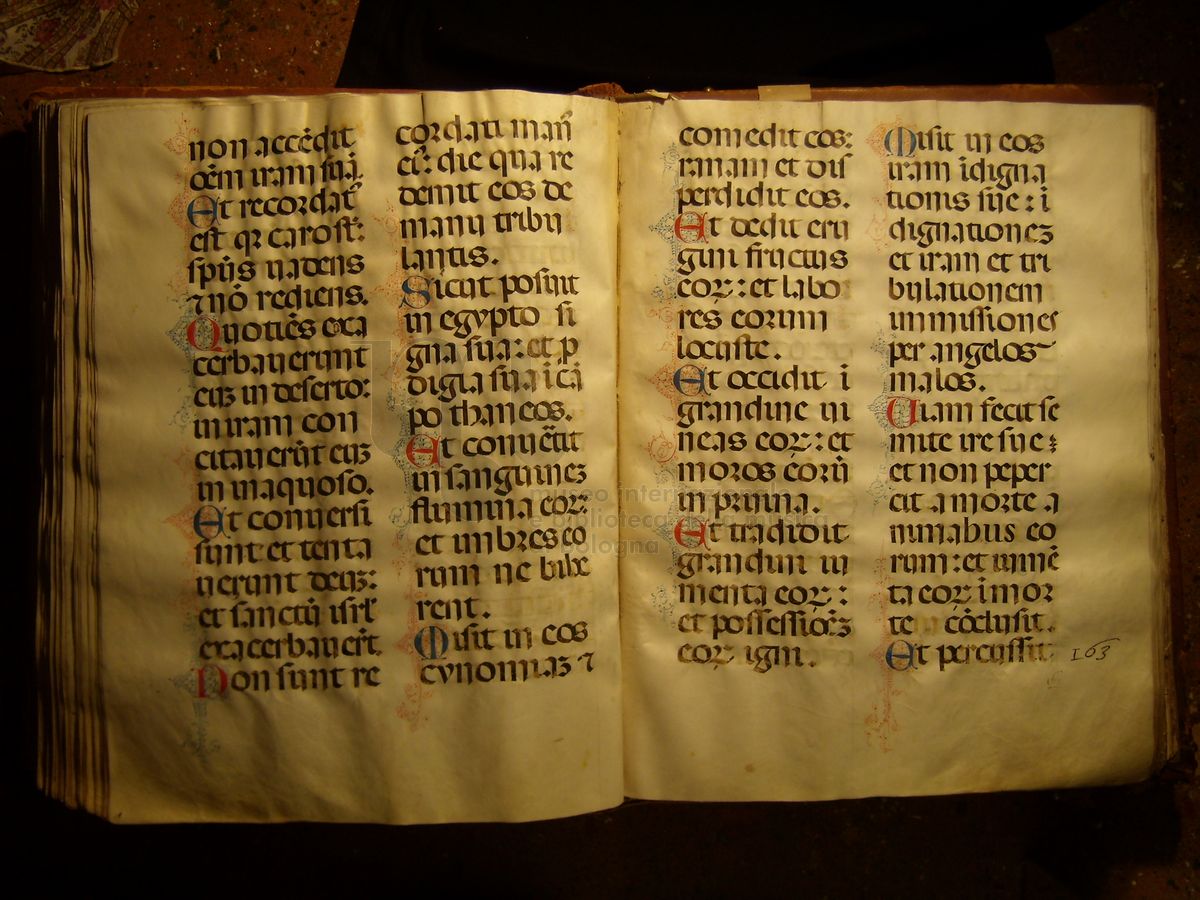 non accēdit
oēm iram suā.
Et recordat᷒
est qꝛ caro sṫ:
spūs uadens
⁊ nō rediens.
Quotiēs exa
cerbauerunt
eūꝫ in deserto:
in iram con
citauerūt eūꝫ
in inaquoso.
Et conuersi
sunt et tenta
uerunt deūꝫ:
et sanctū isrł
exacerbauert̄.
Non sunt re
cordati man᷒
eī: die qua re
demit eos de
manu tribu
lantis.
Sicut posuit
in egypto si
gna sua: et ꝓ
digia sua ī cā
po thaneos.
Et conuētit
in sanguineꝫ
flumina eoꝝ:
et imbres eo
rum ne bibe
rent.
Misit in eos
cynomiaꝫ ⁊
comedit eos:
ranam et dis
perdidit eos.
Et dedit eru
gini fructus
eoꝝ: et labo
res eorum
locuste.
Et occidit ī
grandine ui
neas eoꝝ: et
moros eorū
in pruina.
Et tradidit
grandini iu
menta eoꝝ:
et possessiōeꝫ
eoꝝ igni.
Misit in eos
iram īdigna
tionis sue: ī
dignationeꝫ
et iram et tri
bulationem
immissiones
per angelos
malos.
Uiam fecit se
mite ire sue:
et non peper
cit a morte a
nimabus eo
rum: et iumē
ta eoꝝ ī mor
te cōclusit.
Et percussit
163
museo internazionale
e biblioteca della musica
bologna